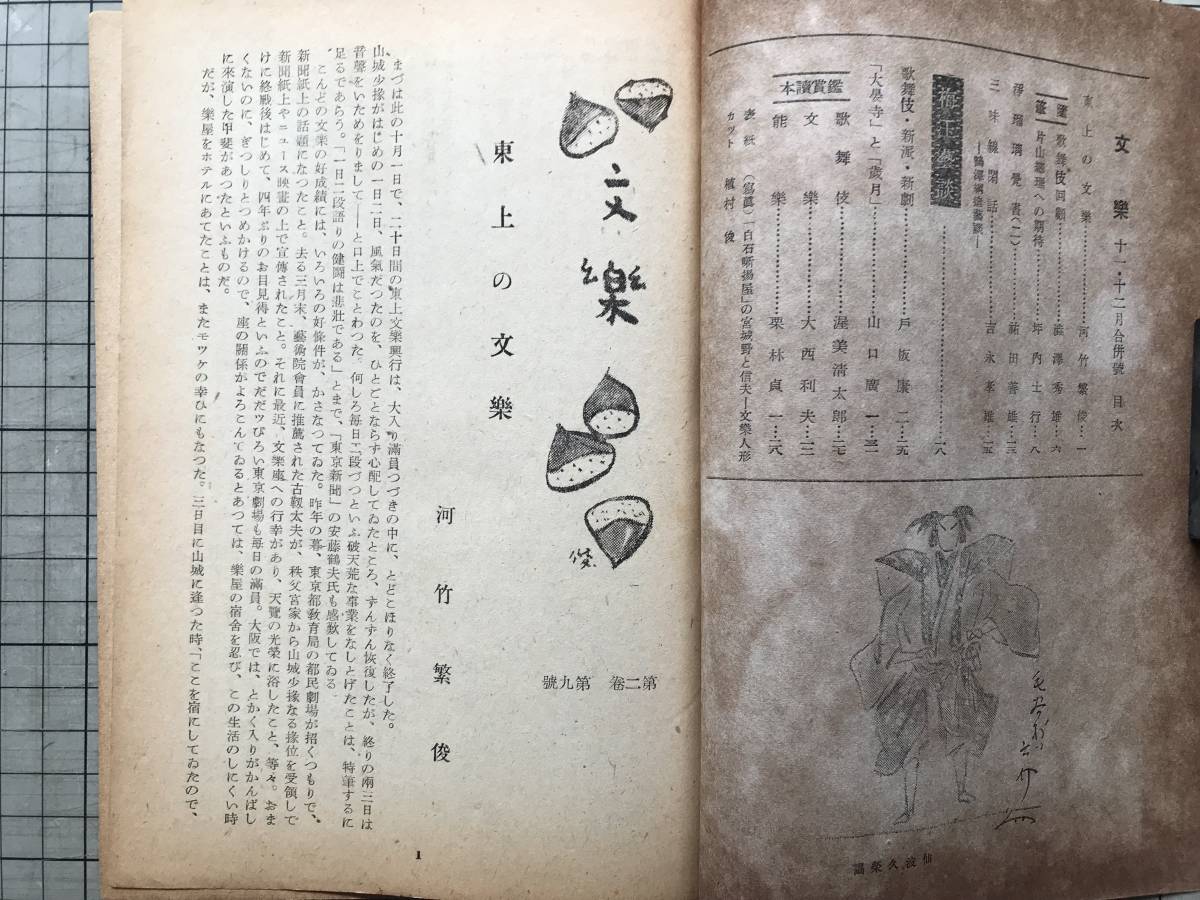 文樂 十一・十二月合併號 目次
東上の文樂……………河竹繁俊…一
隨筆 歌舞伎回顧……………澁澤秀雄…六
隨筆 片山總理への期待……………坪内士行…八
淨瑠璃覺書(二)……………祐田善雄…三
三味線閑話……………吉永孝雄…五
―鶴澤綱造藝談―
梅玉藝談……………一八
歌舞伎・新派・新劇……………戸板康二…元
「大晏寺」と「歳月」……………山口廣一…三
鑑賞讀本
歌舞伎……………渥美清太郎…
文樂……………大西利夫…
能樂……………栗林貞一…六
表紙 (寫眞)「白石噺揚屋」の宮城野と信夫―文樂人形
カット 植村俊
仙波久榮画
文樂
俊
第二卷 第九號
東上の文樂
河竹繁俊
まづは此の十月一日で、二十日間の東上文樂興行は、大入り滿員つづきの中に、とどこほりなく終了した。
山城少掾がはじめの一日二日、風氣だつたのを、ひとごとならず心配してゐたところ、ずんずん恢復したが、終りの兩三日は
音聲をいためをりまして――と口上でことわつた。何しろ毎日二段づつといふ破天荒な事業をなしとげたことは、特筆するに
足るであらう。「一日二段語りの健鬪は悲壯である」とまで、「東京新聞」の安藤鶴夫氏も感歎してゐる
こんどの文樂の好成績には、いろいろの好條件が、かさなつてゐた。昨年の暮、東京都敎育局の都民劇場が招くつもりで、
新聞紙上の話題になつたこと。去る三月末、藝術院會員に推薦された古靱太夫が、秩父宮家から山城少掾なる掾位を受領して
新聞紙上やニュース映畫の上で宣傳されたこと。それに最近、文樂座への行幸があり、天覽の光榮に浴したこと、等々。おま
けに終戰後はじめて、四年ぶりのお目見得といふのでだだッぴろい東京劇場も毎日の滿員。大阪では、とかく入りがかんばし
くないのに、ぎつしりとつめかけるので、座の關係がよろこんでゐるとあつては、樂屋の宿舍を忍び、この生活のしにくい時
に來演した甲斐があつたといふものだ。
だが、樂屋をホテルにあてたことは、またモツケの幸ひにもなつた。三日目に山城に逢つた時、「ここを宿にしてゐたので、
1